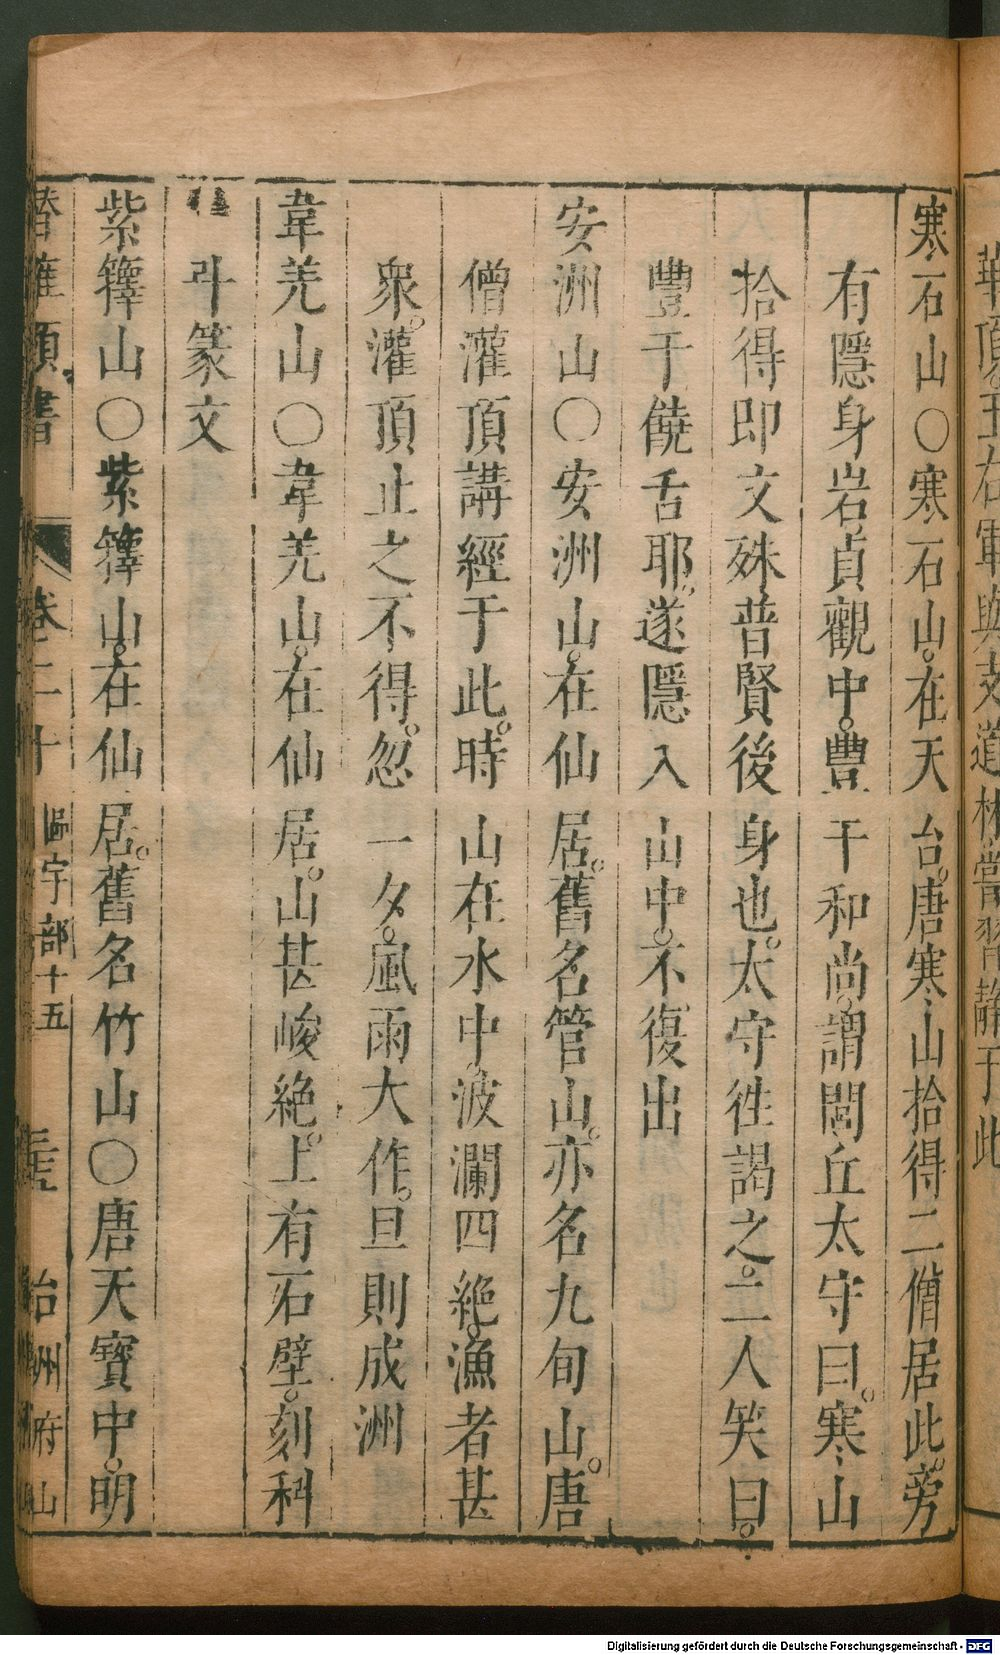 華頂。王右軍與支道林嘗習靜于此
寒石山〇寒石山。在天台。唐寒山拾得二僧居此。旁
有隱身岩貞觀中。豊干和尚。謂閭丘太守曰。寒山
拾得即文殊普賢後身也。太守徃謁之。二人笑曰。
豐干饒舌耶。遂隱入山中。不復出
安洲山〇安洲山。在仙居。舊名管山。亦名九旬山。唐
僧灌頂講經于此。時山在水中。波瀾四絶。漁者甚
衆。灌頂止之不得。忽一夕。風雨大作。旦則成洲
韋羌山〇韋羌山。在仙居。山甚峻絶。上有石壁。刻科
斗篆文
紫籜山〇紫籜山。在仙居。舊名竹山〇唐天寶中。明
卷二十 區宇部十五 台州府山
Digitalisierung gefördert durch die Deutsche Forschungsgemeinschaft - DFG